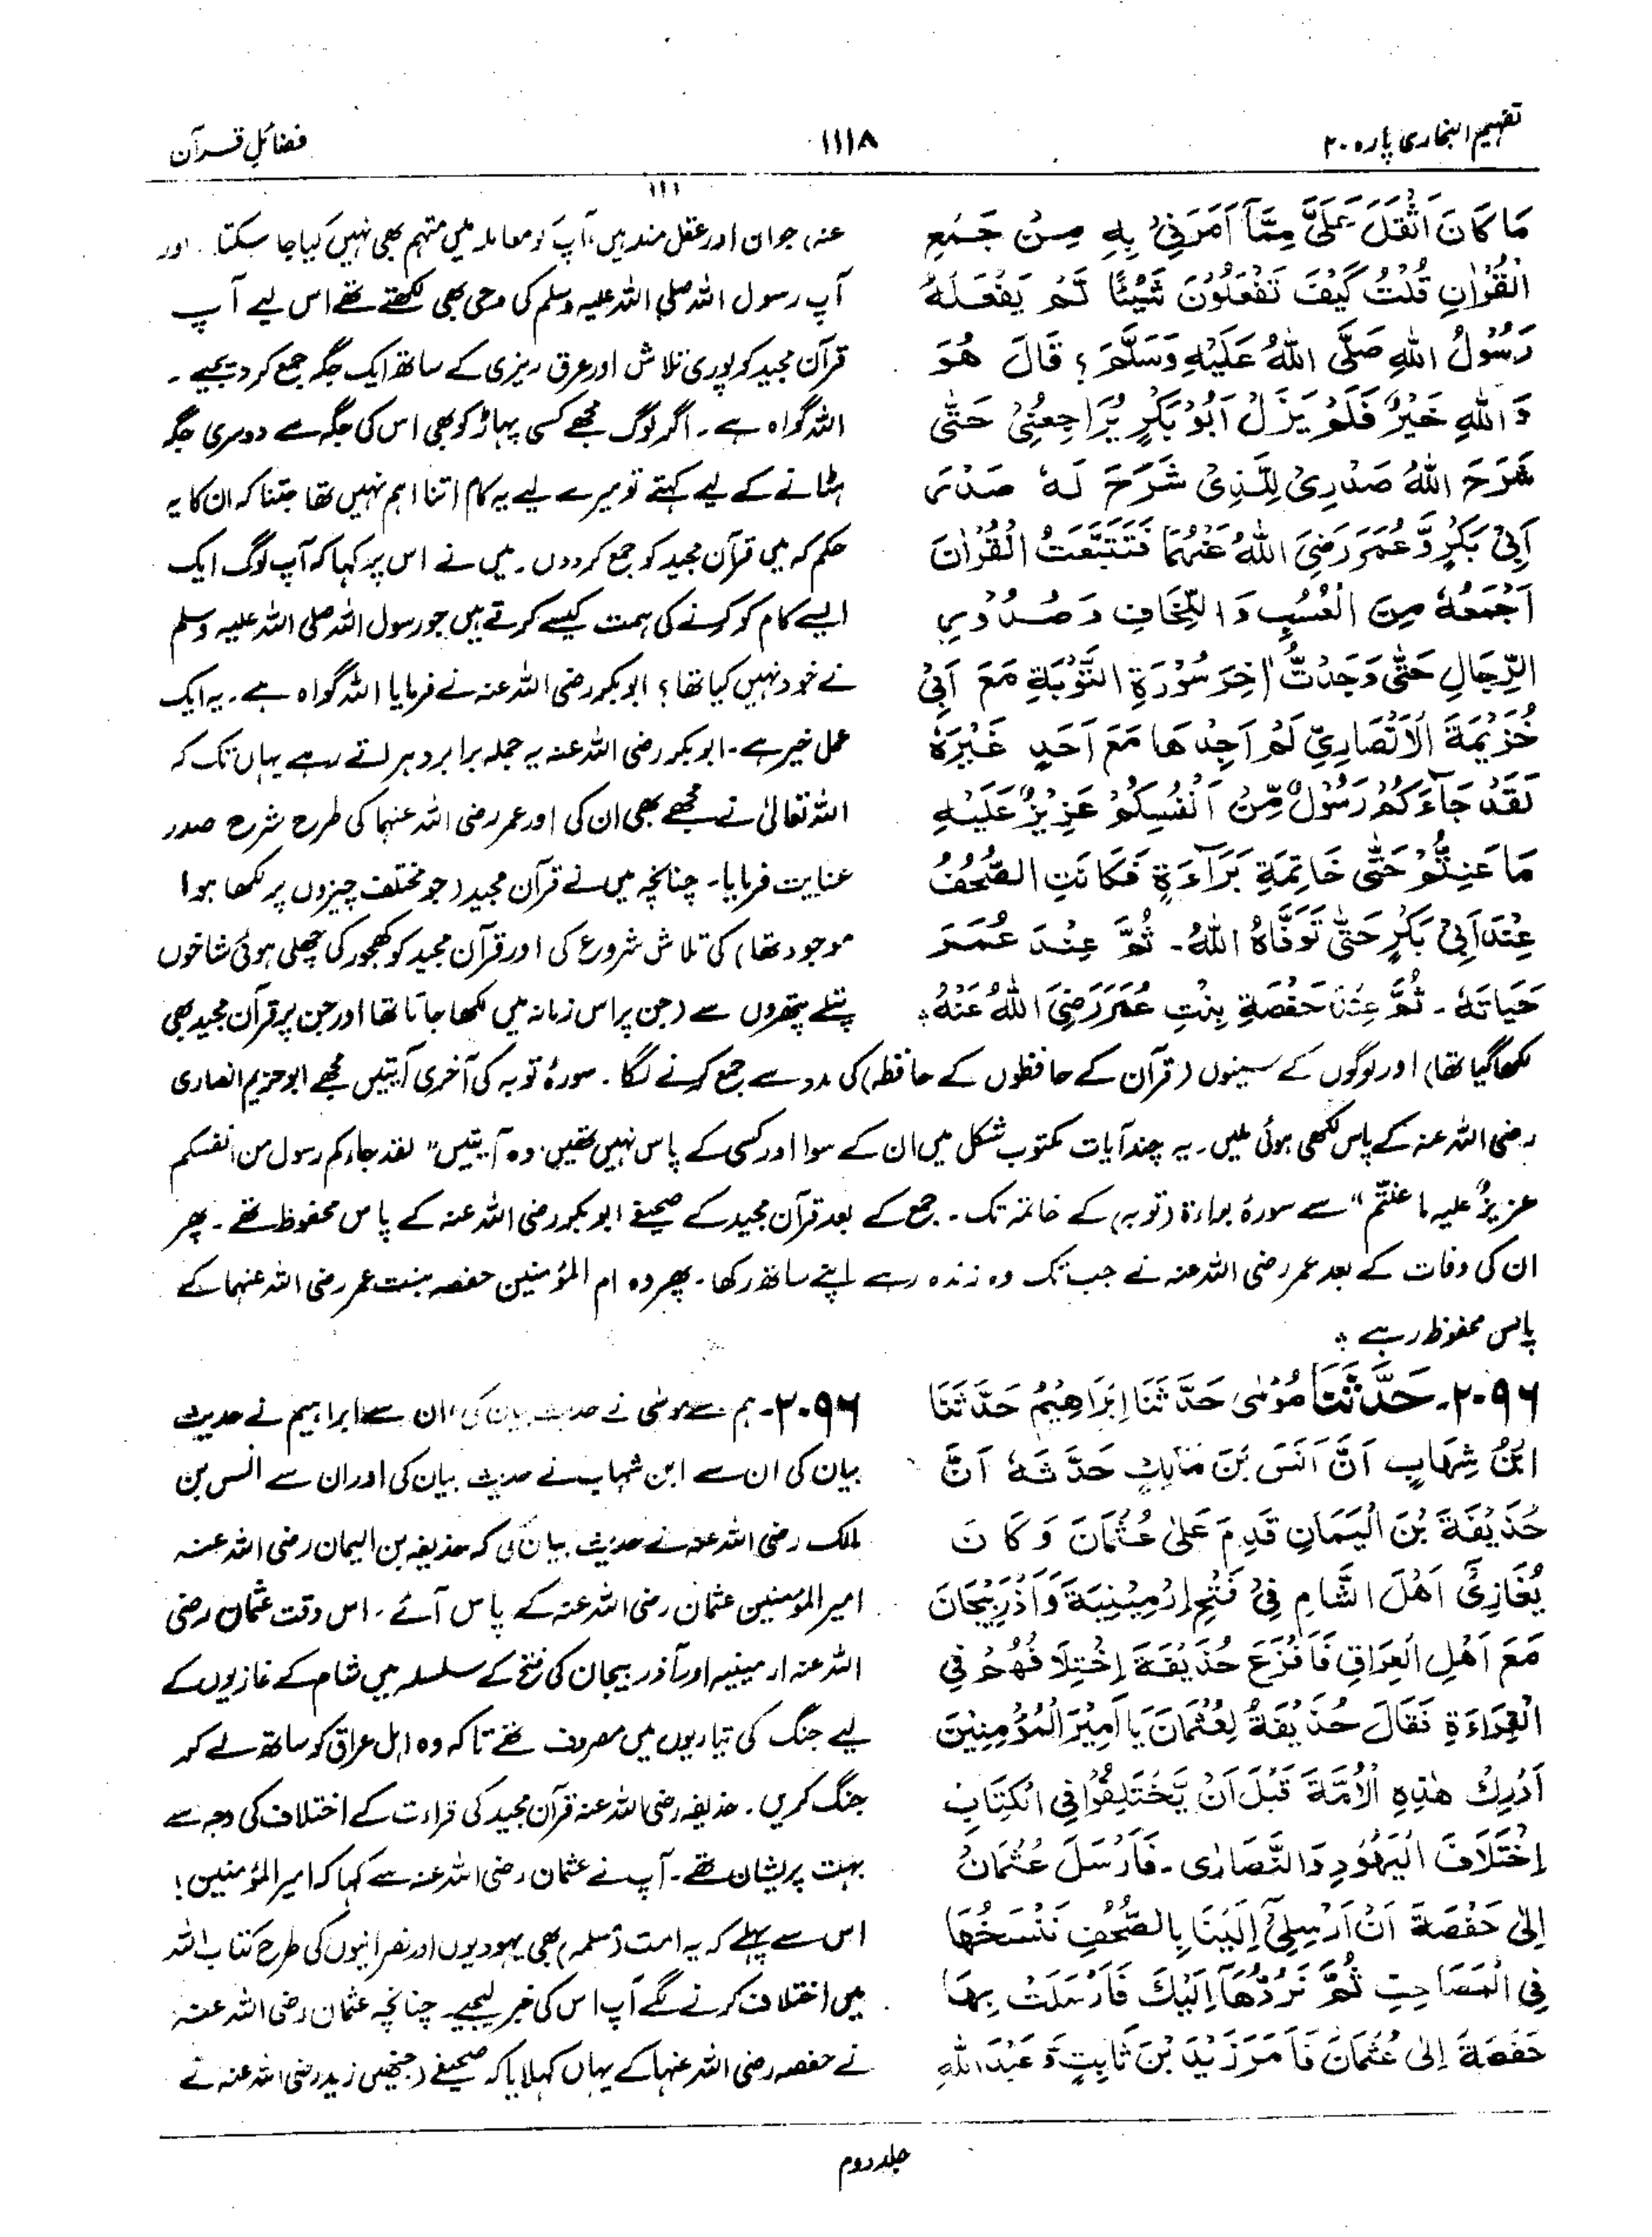 تفہیم البخاری پارہ ۲۰
۱۱۱۸
فضائلِ قرآن
۱۱۱
مَا كَانَ اَثْقَلَ عَلَيَّ مِمَّآ اَمَرَنِيْ بِهٖ مِنْ جَمْعِ
الْقُرْاٰنِ قُلْتُ كَيْفَ تَفْعَلُوْنَ شَيْئًا لَمْ يَفْعَلْهُ
رَسُوْلُ اللهِ صَلَّى اللهُ عَلَيْهِ وَسَلَّمَ؟ قَالَ هُوَ
وَاللهِ خَيْرٌ فَلَمْ يَزَلْ اَبُوْ بَكْرٍ يُّرَاجِعُنِيْ حَتّٰى
شَرَحَ اللهُ صَدْرِيْ لِلَّذِيْ شَرَحَ لَهٗ صَدْرَ
اَبِيْ بَكْرٍ وَّعُمَرَ رَضِيَ اللهُ عَنْهُمَا فَتَتَبَّعْتُ الْقُرْاٰنَ
اَجْمَعُهٗ مِنَ الْعُسُبِ وَاللِّخَافِ وَصُدُوْرِ
الرِّجَالِ حَتّٰى وَجَدْتُّ اٰخِرَ سُوْرَةِ التَّوْبَةِ مَعَ اَبِيْ
خُزَيْمَةَ الْاَنْصَارِيِّ لَمْ اَجِدْهَا مَعَ اَحَدٍ غَيْرَهٗ
لَقَدْ جَآءَكُمْ رَسُوْلٌ مِّنْ اَنْفُسِكُمْ عَزِيْزٌ عَلَيْهِ
مَا عَنِتُّمْ حَتّٰى خَاتِمَةِ بَرَآءَةٍ فَكَانَتِ الصُّحُفُ
عِنْدَ اَبِيْ بَكْرٍ حَتّٰى تَوَفَّاهُ اللهُ۔ ثُمَّ عِنْدَ عُمَرَ
حَيَاتَهٗ۔ ثُمَّ عِنْدَ حَفْصَةَ بِنْتِ عُمَرَ رَضِيَ اللهُ عَنْهُ؞
عنہ، جوان اور عقل مند ہیں، آپ کو معاملہ میں متہم بھی نہیں کیا جا سکتا۔ اور
آپ رسول اللہ صلی اللہ علیہ وسلم کی وحی بھی لکھتے تھے اس لیے آپ
قرآن مجید کو پوری تلاش اور عرق ریزی کے ساتھ ایک جگہ جمع کر دیجیے۔
اللہ گواہ ہے۔ اگر لوگ مجھے کسی پہاڑ کو بھی اس کی جگہ سے دوسری جگہ
ہٹانے کے لیے کہتے تو میرے لیے یہ کام اتنا اہم نہیں تھا جتنا کہ ان کا یہ
حکم کہ میں قرآن مجید کو جمع کر دوں۔ میں نے اس پر کہا کہ آپ لوگ ایک
ایسے کام کو کرنے کی ہمت کیسے کرتے ہیں جو رسول اللہ صلی اللہ علیہ وسلم
نے خود نہیں کیا تھا؟ ابوبکر رضی اللہ عنہ نے فرمایا اللہ گواہ ہے۔ یہ ایک
عمل خیر ہے۔ ابوبکر رضی اللہ عنہ یہ جملہ برابر دہراتے رہے یہاں تک کہ
اللہ تعالیٰ نے مجھے بھی ان کی اور عمر رضی اللہ عنہما کی طرح شرح صدر
عنایت فرمایا۔ چنانچہ میں نے قرآن مجید (جو مختلف چیزوں پر لکھا ہوا
موجود تھا) کی تلاش شروع کی اور قرآن مجید کو کھجور کی چھلی ہوئی شاخوں
پتلے پتھروں سے (جن پر اس زمانہ میں لکھا جاتا تھا اور جن پر قرآن مجید بھی
لکھا گیا تھا) اور لوگوں کے سینوں (قرآن کے حافظوں کے حافظہ) کی مدد سے جمع کرنے لگا۔ سورۂ توبہ کی آخری آیتیں مجھے ابوخزیمہ انصاری
رضی اللہ عنہ کے پاس لکھی ہوئی ملیں۔ یہ چند آیات مکتوب شکل میں ان کے سوا اور کسی کے پاس نہیں تھیں، وہ آیتیں "لقد جاءکم رسول من انفسکم
عزیزٌ علیہ ما عنتّم" سے سورۂ براءۃ (توبہ) کے خاتمہ تک۔ جمع کے بعد قرآن مجید کے صحیفے ابوبکر رضی اللہ عنہ کے پاس محفوظ تھے۔ پھر
ان کی وفات کے بعد عمر رضی اللہ عنہ نے جب تک وہ زندہ رہے اپنے ساتھ رکھا۔ پھر وہ ام المؤمنین حفصہ بنت عمر رضی اللہ عنہما کے
پاس محفوظ رہے؞
۲۰۹۶۔ حَدَّثَنَا مُوْسٰى حَدَّثَنَا اِبْرَاهِيْمُ حَدَّثَنَا
ابْنُ شِهَابٍ اَنَّ اَنَسَ بْنَ مَالِكٍ حَدَّثَهٗ اَنَّ
حُذَيْفَةَ بْنَ الْيَمَانِ قَدِمَ عَلٰى عُثْمَانَ وَكَانَ
يُغَازِيْ اَهْلَ الشَّامِ فِيْ فَتْحِ اِرْمِيْنِيَةَ وَاَذْرَبِيْجَانَ
مَعَ اَهْلِ الْعِرَاقِ فَاَفْزَعَ حُذَيْفَةَ اِخْتِلَافُهُمْ فِي
الْقِرَاءَةِ فَقَالَ حُذَيْفَةُ لِعُثْمَانَ يَا اَمِيْرَ الْمُؤْمِنِيْنَ
اَدْرِكْ هٰذِهِ الْاُمَّةَ قَبْلَ اَنْ يَّخْتَلِفُوْا فِي الْكِتَابِ
اِخْتِلَافَ الْيَهُوْدِ وَالنَّصَارٰى۔ فَاَرْسَلَ عُثْمَانُ
اِلٰى حَفْصَةَ اَنْ اَرْسِلِيْٓ اِلَيْنَا بِالصُّحُفِ نَنْسَخُهَا
فِي الْمَصَاحِفِ ثُمَّ نَرُدُّهَآ اِلَيْكَ فَاَرْسَلَتْ بِهَا
حَفْصَةُ اِلٰى عُثْمَانَ فَاَمَرَ زَيْدَ بْنَ ثَابِتٍ وَّعَبْدَ اللهِ
۲۰۹۶۔ ہم سے موسٰی نے حدیث بیان کی، ان سے ابراہیم نے حدیث
بیان کی ان سے ابن شہاب نے حدیث بیان کی اور ان سے انس بن
مالک رضی اللہ عنہ نے حدیث بیان کی کہ حذیفہ بن الیمان رضی اللہ عنہ
امیر المؤمنین عثمان رضی اللہ عنہ کے پاس آئے۔ اس وقت عثمان رضی
اللہ عنہ ارمینیہ اور آذر بیجان کی فتح کے سلسلہ میں شام کے غازیوں کے
لیے جنگ کی تیاریوں میں مصروف تھے تاکہ وہ اہل عراق کو ساتھ لے کر
جنگ کریں۔ حذیفہ رضی اللہ عنہ قرآن مجید کی قراءت کے اختلاف کی وجہ سے
بہت پریشان تھے۔ آپ نے عثمان رضی اللہ عنہ سے کہا کہ امیر المؤمنین!
اس سے پہلے کہ یہ امت (مسلمہ) بھی یہودیوں اور نصرانیوں کی طرح کتاب اللہ
میں اختلاف کرنے لگے آپ اس کی خبر لیجیے چنانچہ عثمان رضی اللہ عنہ
نے حفصہ رضی اللہ عنہا کے یہاں کہلایا کہ صحیفے (جنھیں زید رضی اللہ عنہ نے
جلد دوم